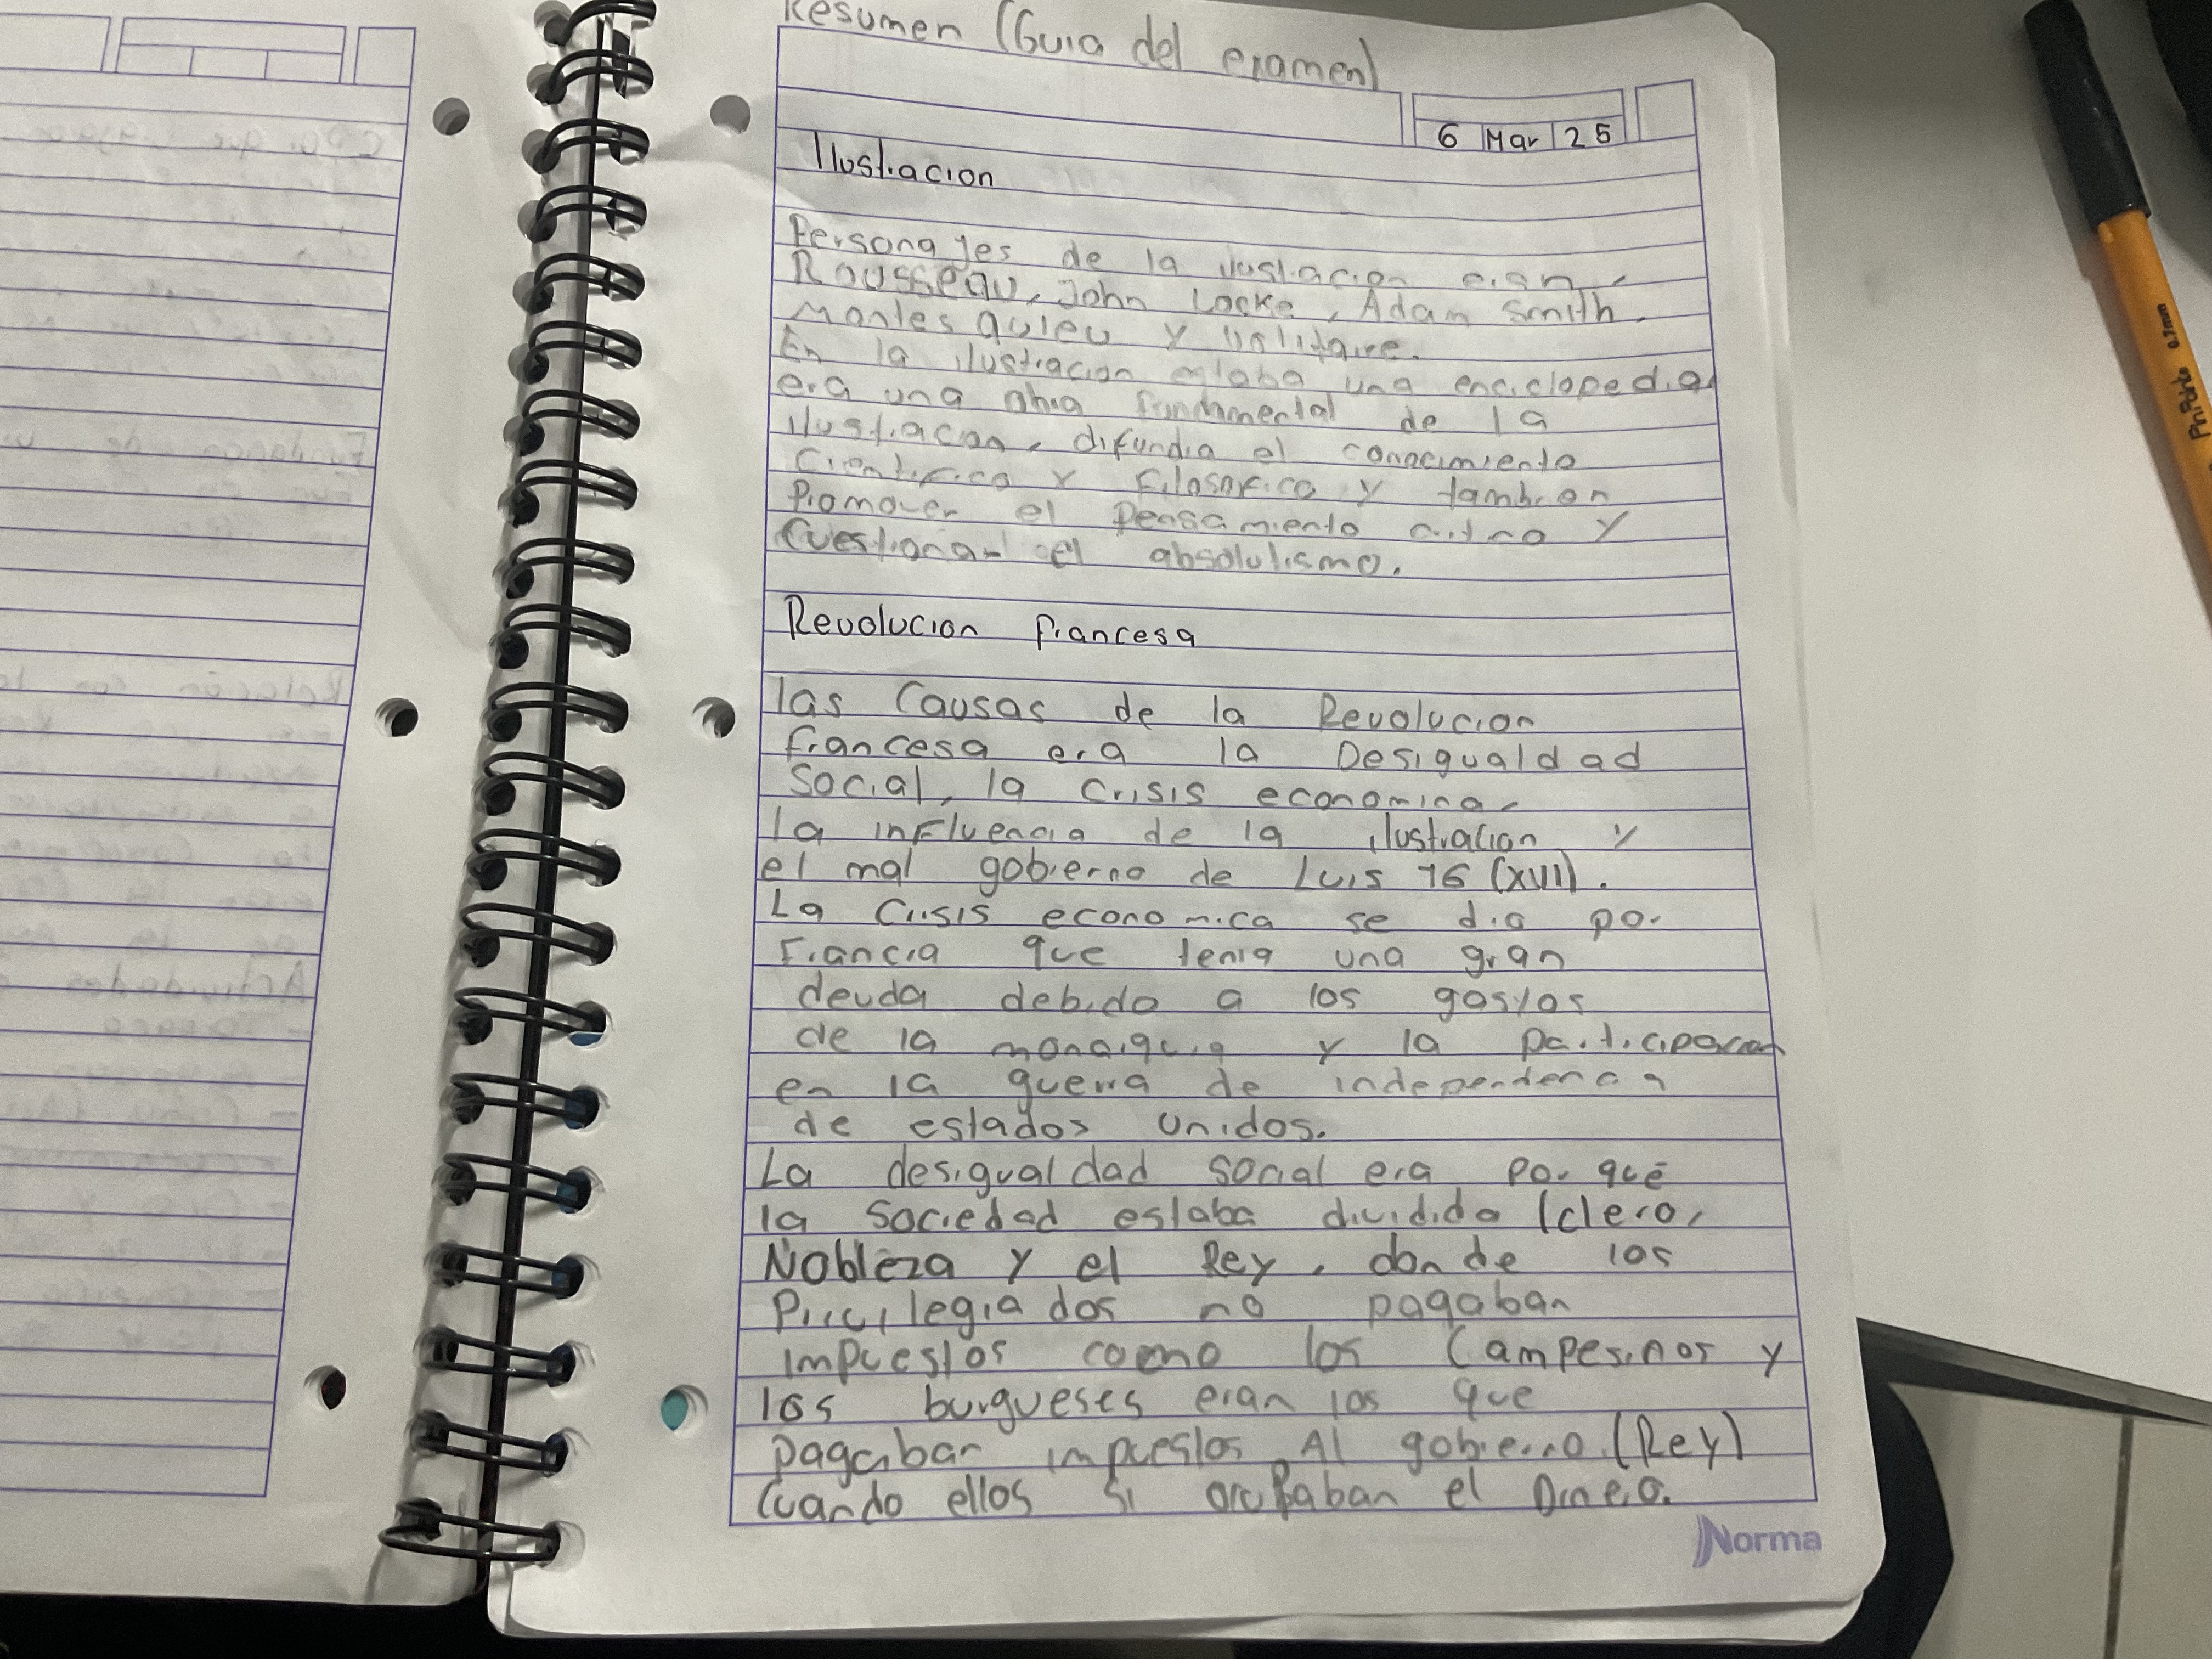 Resumen (Guia del examen)
6 Mar 25
Ilustracion
Personajes de la ilustracion eran,
Rousseau, John Locke, Adam Smith,
Montesquieu y Volitaire.
En la ilustracion estaba una enciclopedia
era una obra fundamental de la
ilustracion, difundia el conocimiento
Cientifico y Filosofico y tambien
Promover el Pensamiento critco y
Cuestionar el absolutismo.
Revolucion francesa
las Causas de la Revolucion
francesa era la Desigualdad
Social, la crisis economica,
la influencia de la ilustracion y
el mal gobierno de Luis 16 (XVI).
La Crisis economica se dio por
Francia que tenia una gran
deuda debido a los gastos
de la monarquia y la participacion
en la guerra de independencia
de estados unidos.
La desigualdad social era por qué
la sociedad estaba dividida (clero,
Nobleza y el Rey, donde los
Privilegiados no pagaban
impuestos como los Campesinos y
los burgueses eran los que
pagaban impuestos Al gobierno (Rey)
Cuando ellos si ocupaban el Dinero.
Norma
0.7mm